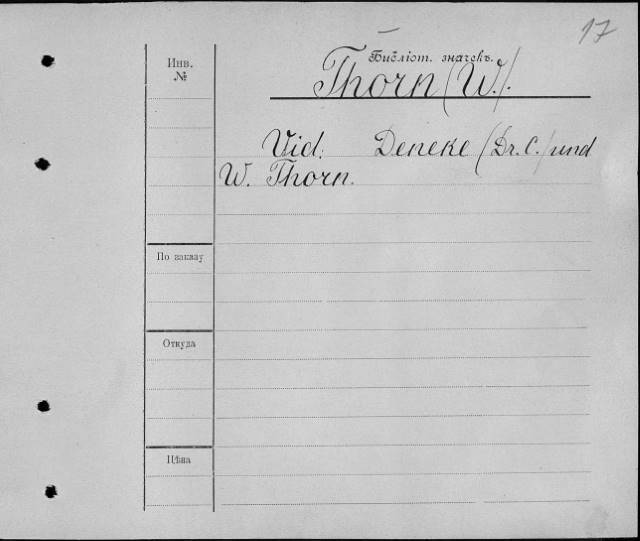 17
Библіот. значекъ.
Thorn (W.).
Инв.
№
Vid. Deneke (Dr. C.) und
W. Thorn.
По заказу
Откуда
Цѣна